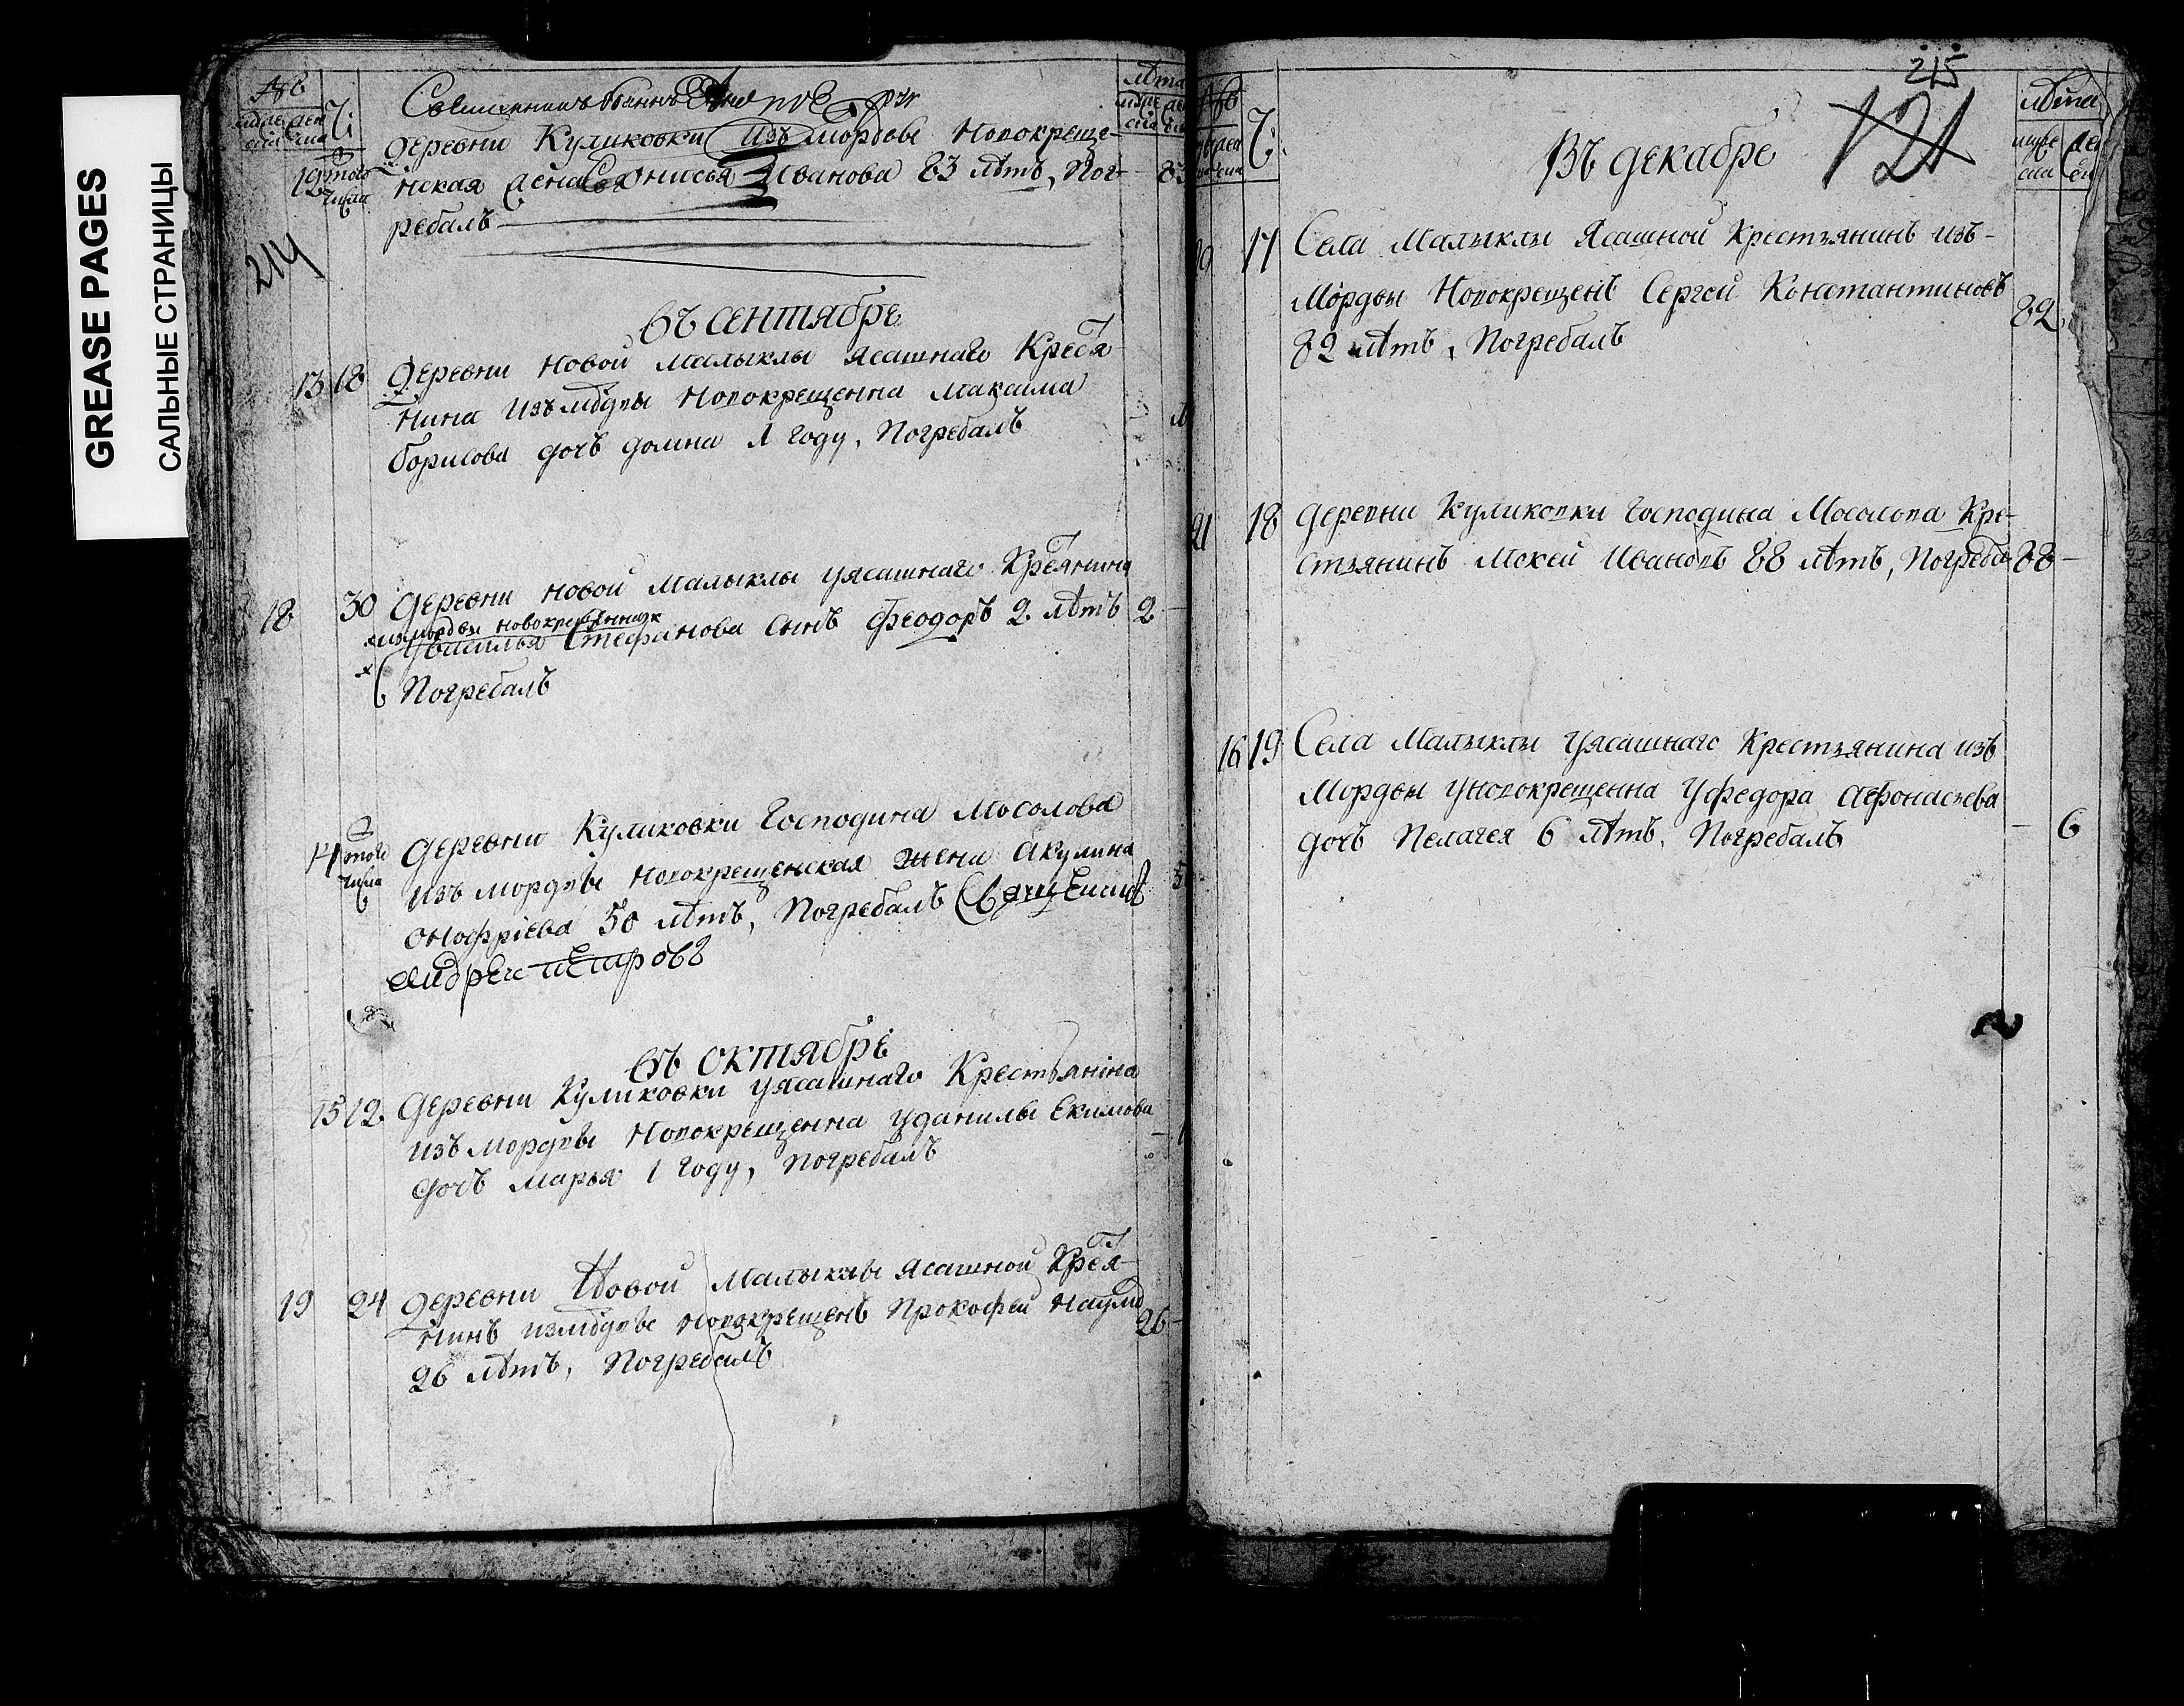 GREASE PAGES
САЛЬНЫЕ СТРАНИЦЫ
214
Деревни Куликовки изъ мордвы Новокреще-
12 того числа
нская жена Анисья Иванова 83 лѣтъ, Пог-
83
ребалъ
въ сентябрѣ
13 18 Деревни новой малыклы ясашнаго Крестья
нина Изъ мордвы Новокрещенна Максима
борисова дочь домна 1 году, Погребалъ
18 30 Деревни новой Малыклы уясашнаго Крестьянина
изъ мордвы новокрещеннаго
Увасилья Стефанова сынъ феодоръ 2 лѣтъ 2
Погребалъ
14 того числа Деревни Куликовки Господина Мосолова
изъ мордвы Новокрещенская жена Акулина
Онофріева 50 лѣтъ, Погребалъ Священникъ
Андреи петровъ
въ октябрѣ
15 12 Деревни Куликовки уясашнаго Крестьянина
изъ мордвы Новокрещенна уданилы Екимова
дочь марья 1 году, погребалъ
19 24 Деревни Новой Малыклы ясашной Крестья-
нинъ измордвы новокрещенъ Прокофеи Наумо
26
26 лѣтъ, Погребалъ
215
121
лѣта
Въ декабрѣ
17 Села Малыклы Ясашной Крестьянинъ изъ-
Мордвы Новокрещенъ Сергей Константиновъ
82
82 лѣтъ, Погребалъ
21 18 Деревни Куликовки Господина Мосолова Кре-
стьянинъ Мокей Ивановъ 88 лѣтъ, Погреба 88
16 19 Села Малыклы Уясашнаго Крестьянина изъ
Мордвы Уновокрещенна Уфедора Афонасьева
дочь Пелагея 6 лѣтъ, Погребалъ
6